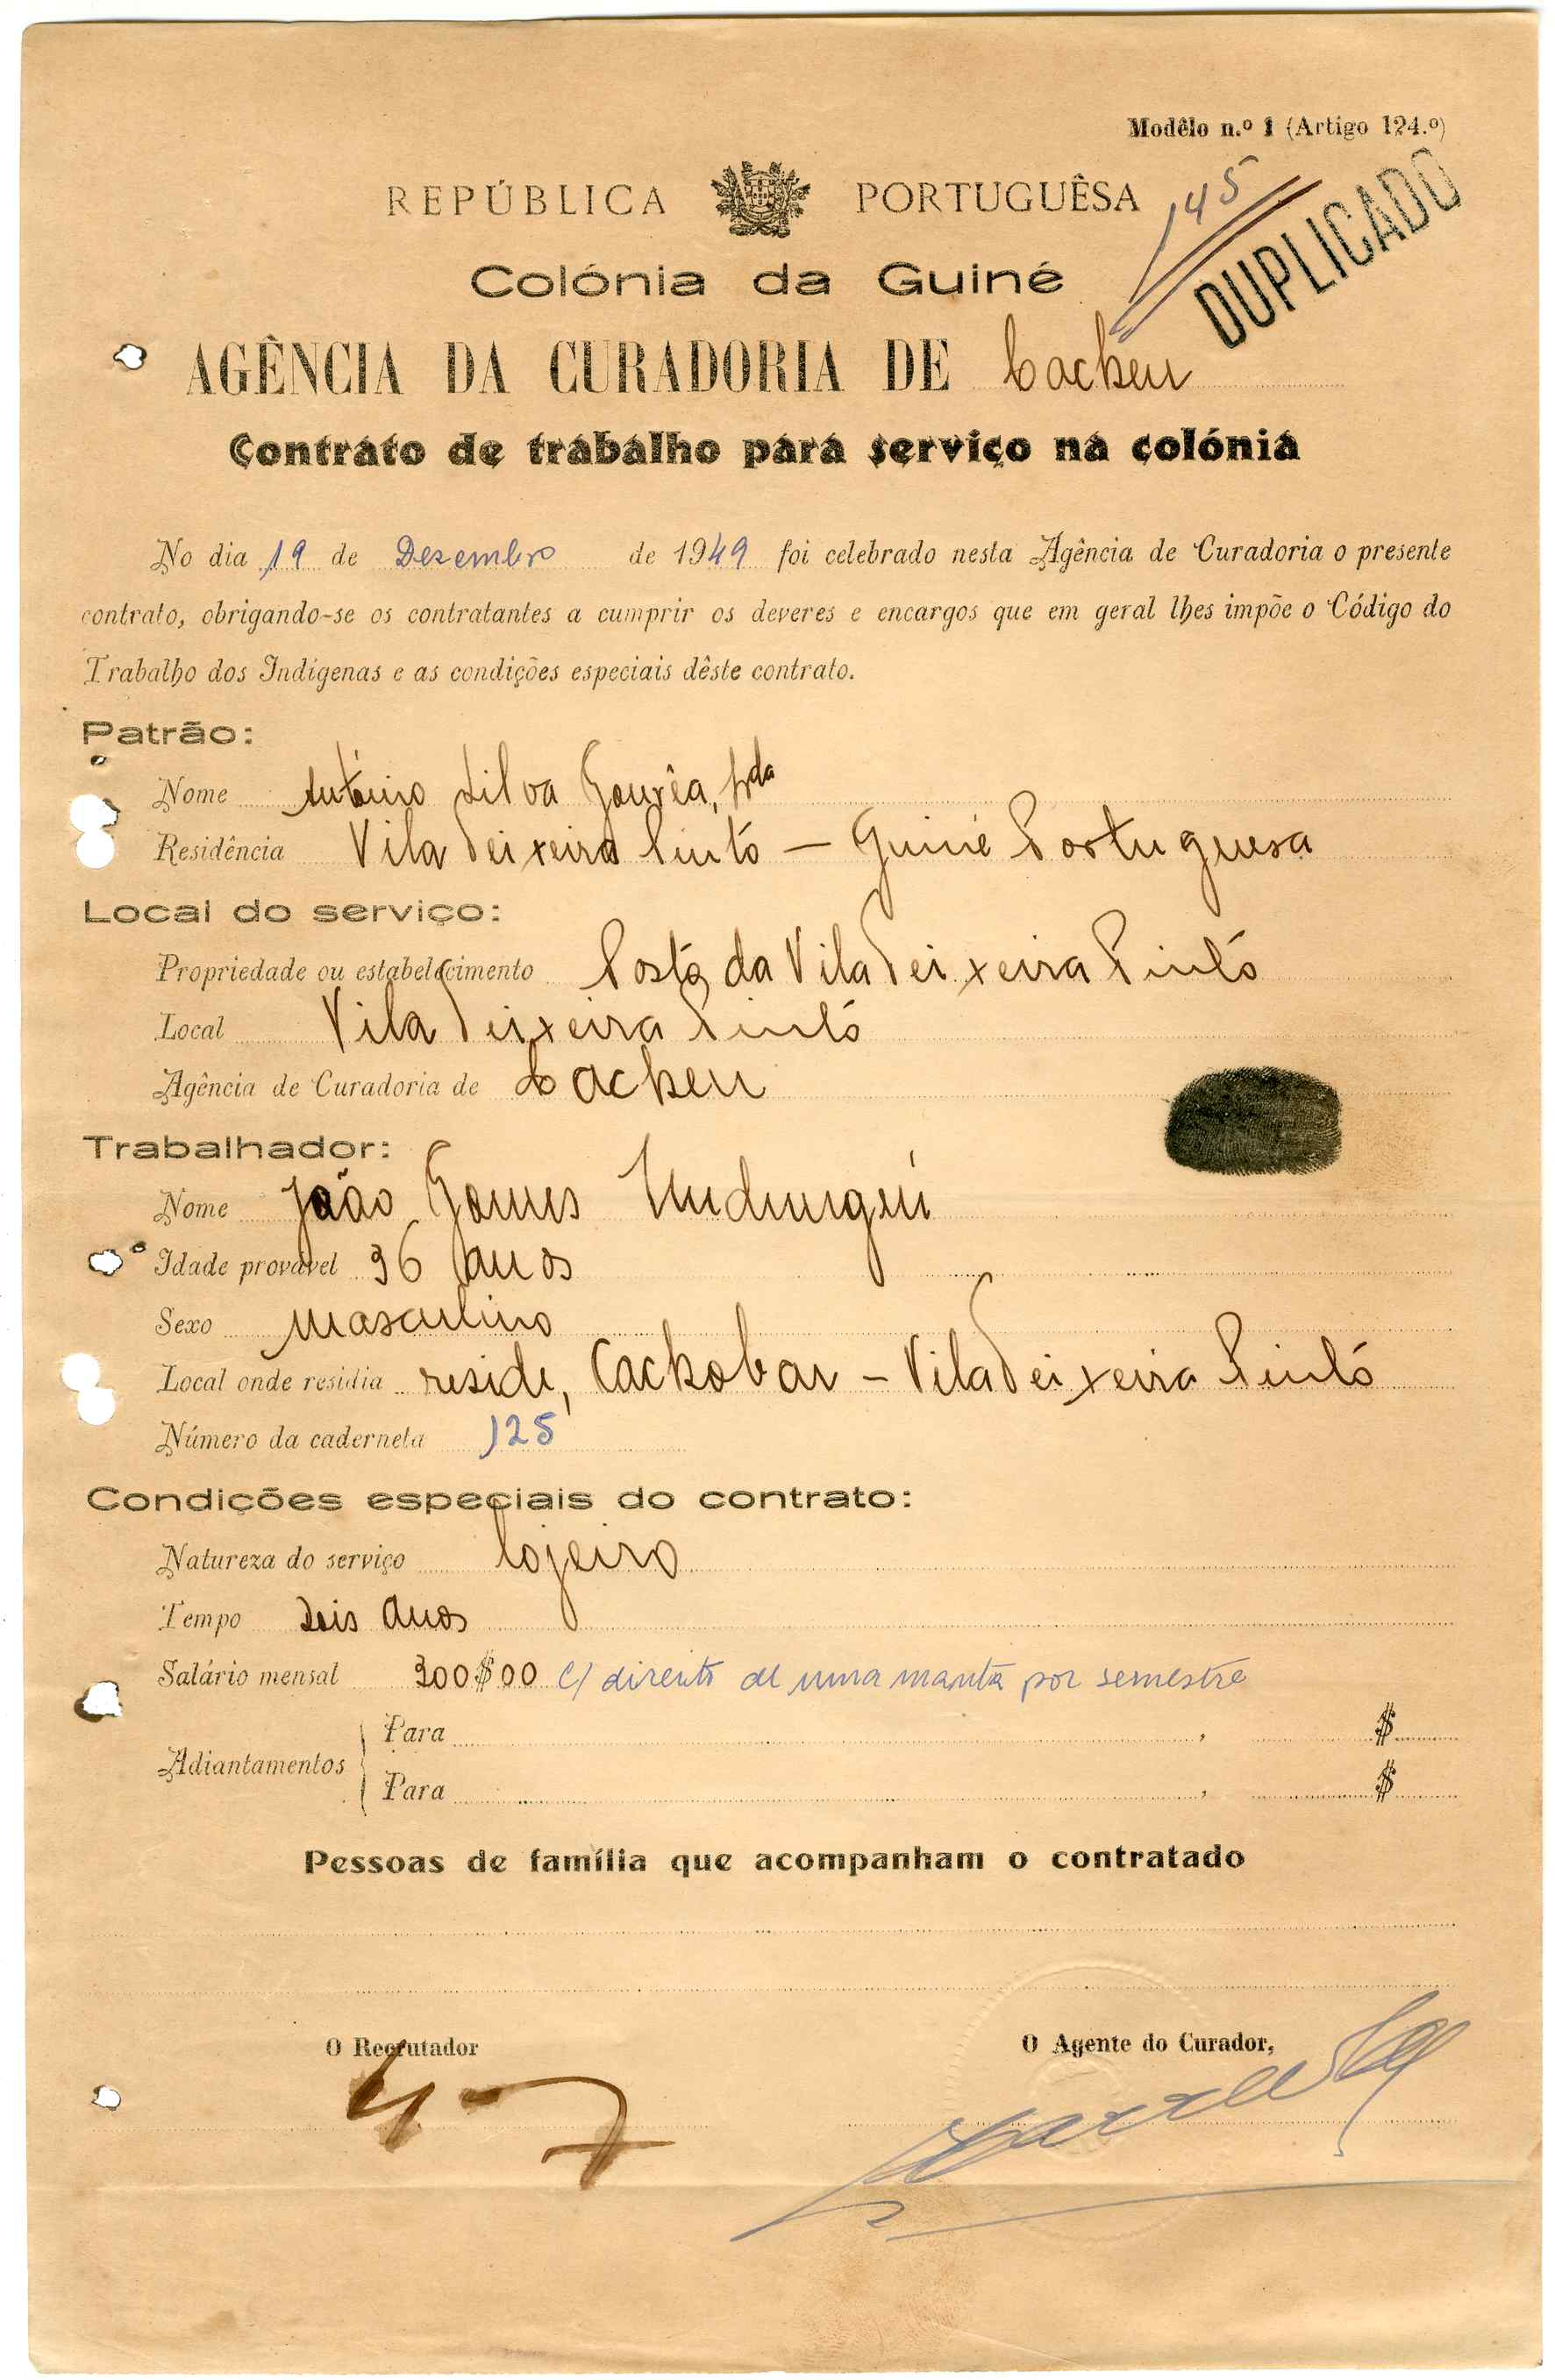 Modêlo n.º 1 (Artigo 124.º)
REPÚBLICA PORTUGUÊSA
145
DUPLICADO
Colónia da Guiné
AGÊNCIA DA CURADORIA DE Cacheu
Contrato de trabalho para serviço na colónia
No dia 19 de Dezembro de 1949 foi celebrado nesta Agência de Curadoria o presente
contrato, obrigando-se os contratantes a cumprir os deveres e encargos que em geral lhes impõe o Código do
Trabalho dos Indígenas e as condições especiais dêste contrato.
Patrão:
Nome António Silva Gouvêa, Lda
Residência Vila Teixeira Pinto — Guiné Portuguesa
Local do serviço:
Propriedade ou estabelecimento Posto da Vila Teixeira Pinto
Local Vila Teixeira Pinto
Agência de Curadoria de Cacheu
Trabalhador:
Nome João Gomes
Idade provável 36 anos
Sexo masculino
Local onde residia reside, Cachobar - Vila Teixeira Pinto
Número da caderneta 125
Condições especiais do contrato:
Natureza do serviço lojeiro
Tempo Dois anos
Salário mensal 300$00 c/ direito de uma manta por semestre
Adiantamentos
Para , $
Para , $
Pessoas de família que acompanham o contratado
O Recrutador
O Agente do Curador,